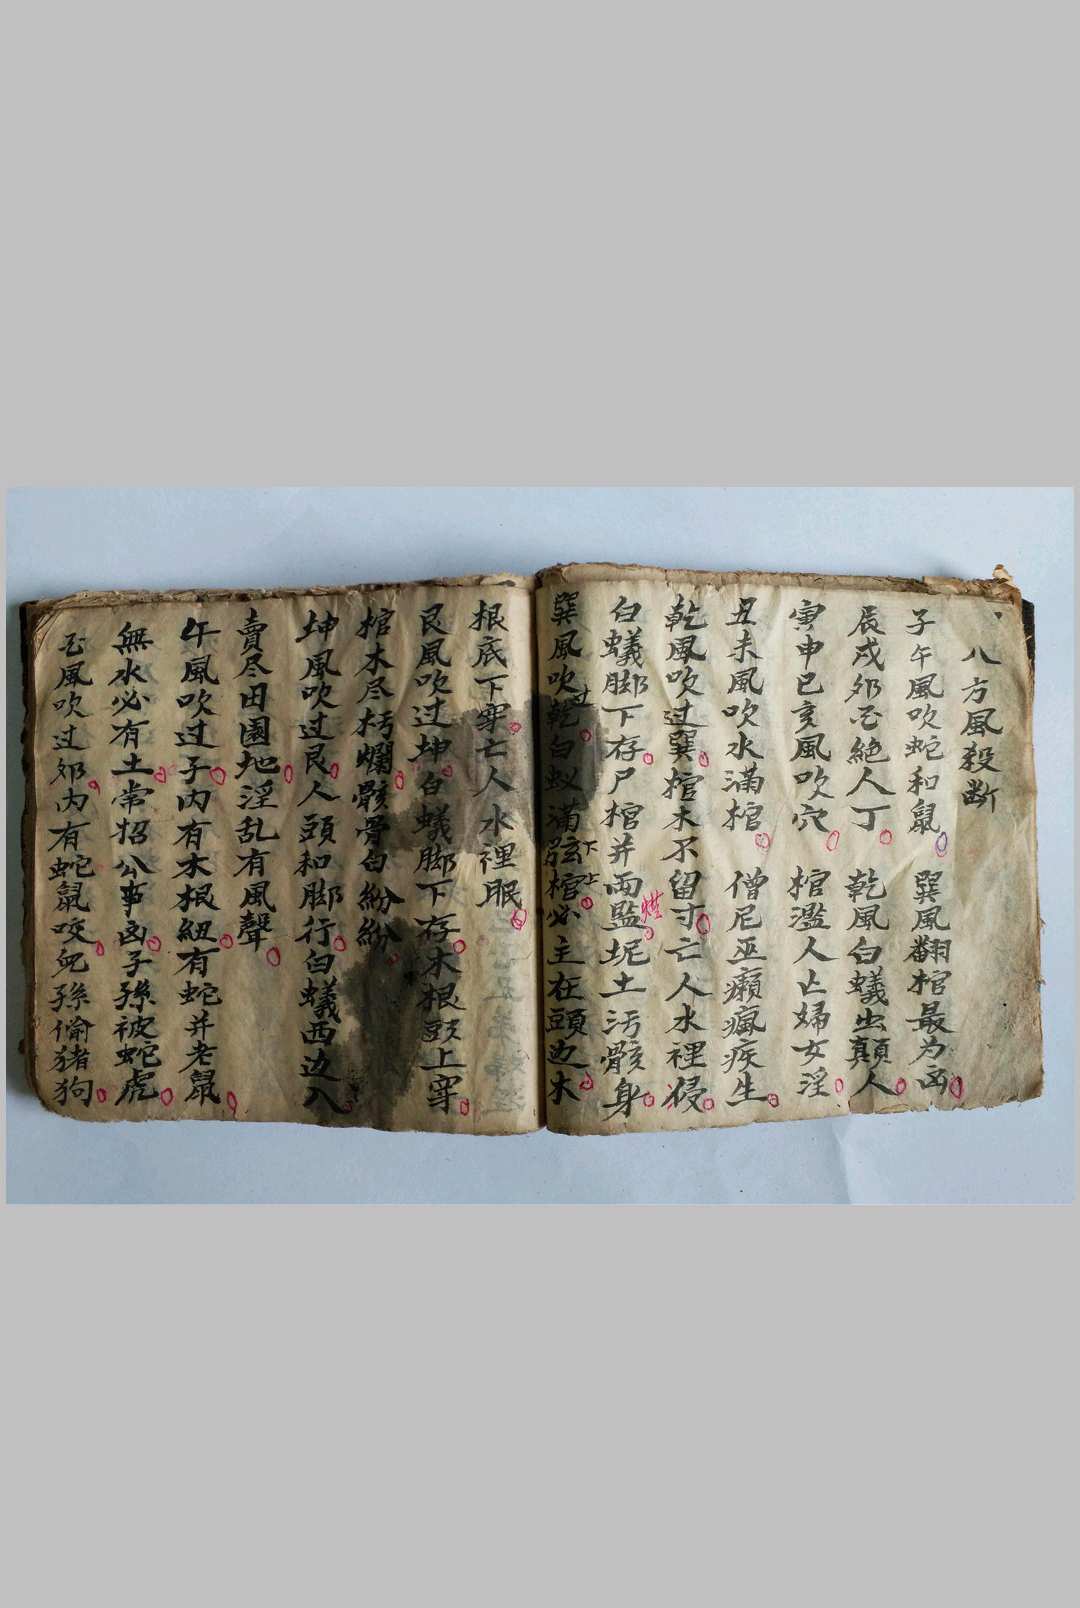 八方風殺断
子午風吹蛇和鼠 巽風翻棺最为凶
辰戌夘酉絶人丁 乾風白蟻出顛人
寅申巳亥風吹穴 棺濫人亡婦女淫
丑未風吹水滿棺 僧尼巫癩瘋疾生
乾風吹过巽棺木不留寸亡人水裡侵
白蟻脚下存尸棺并両監坭土汚骸身
巽風吹过乾白蚁滿弦下上棺必主在頭边木
根底下穿亡人水裡眠
艮風吹过坤白蟻脚下存木根鼓上穿
棺木尽朽爛骸骨白紛紛
坤風吹过艮人頭和脚行白蟻西边入
賣尽田園地淫乱有風聲
午風吹过子内有木根紐有蛇并老鼠
無水必有土常招公事凶子孫被蛇虎
酉風吹过夘内有蛇鼠咬兒孫偷猪狗